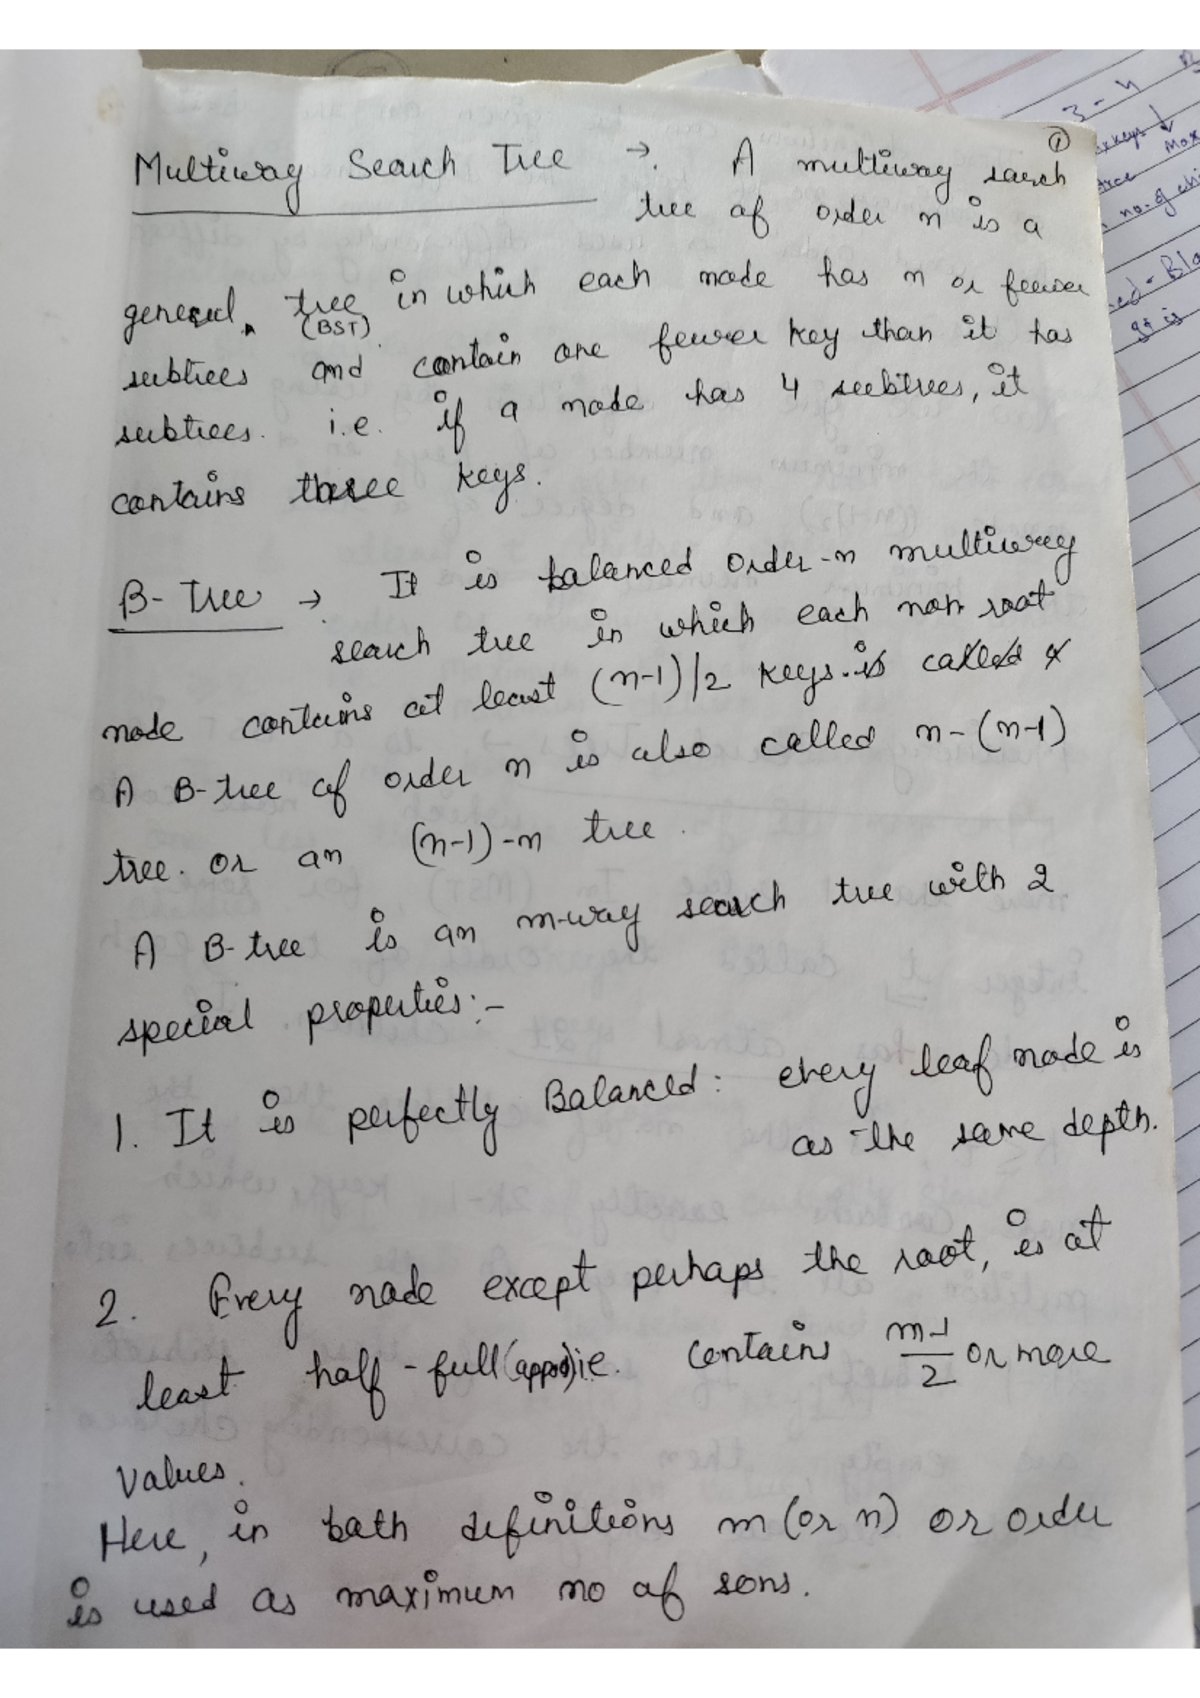 ①
Multiway Search Tree →. A multiway sarch
tree of order n is a
general tree in which each node has n or feewer
(BST)
subtrees and contain one fewer key than it has
subtrees. i.e. if a node has 4 subtrees, it
contains three keys.
B-Tree → It is balanced Order-n multiway
search tree in which each non root
node contains at least (n-1)/2 keys. is called
A B-tree of order n is also called n-(n-1)
tree. or an (n-1)-n tree.
A B-tree is an m-way search tree with 2
special properties:-
1. It is perfectly Balanced: every leaf node is
as the same depth.
2. Every node except perhaps the root, is at
least half-full(approx)i.e. contains m-1/2 or more
values.
Here, in both definitions m (or n) or order
is used as maximum no of sons.
3-4
keys
Max
no. of
ed-Bla
gt is